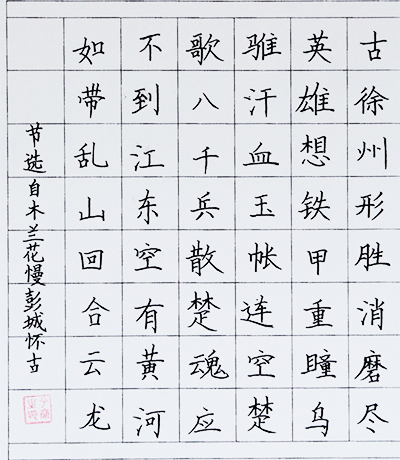 古徐州形胜消磨尽
英雄想铁甲重瞳乌
骓汗血玉帐连空楚
歌八千兵散楚魂应
不到江东空有黄河
如带乱山回合云龙
节选自木兰花慢彭城怀古